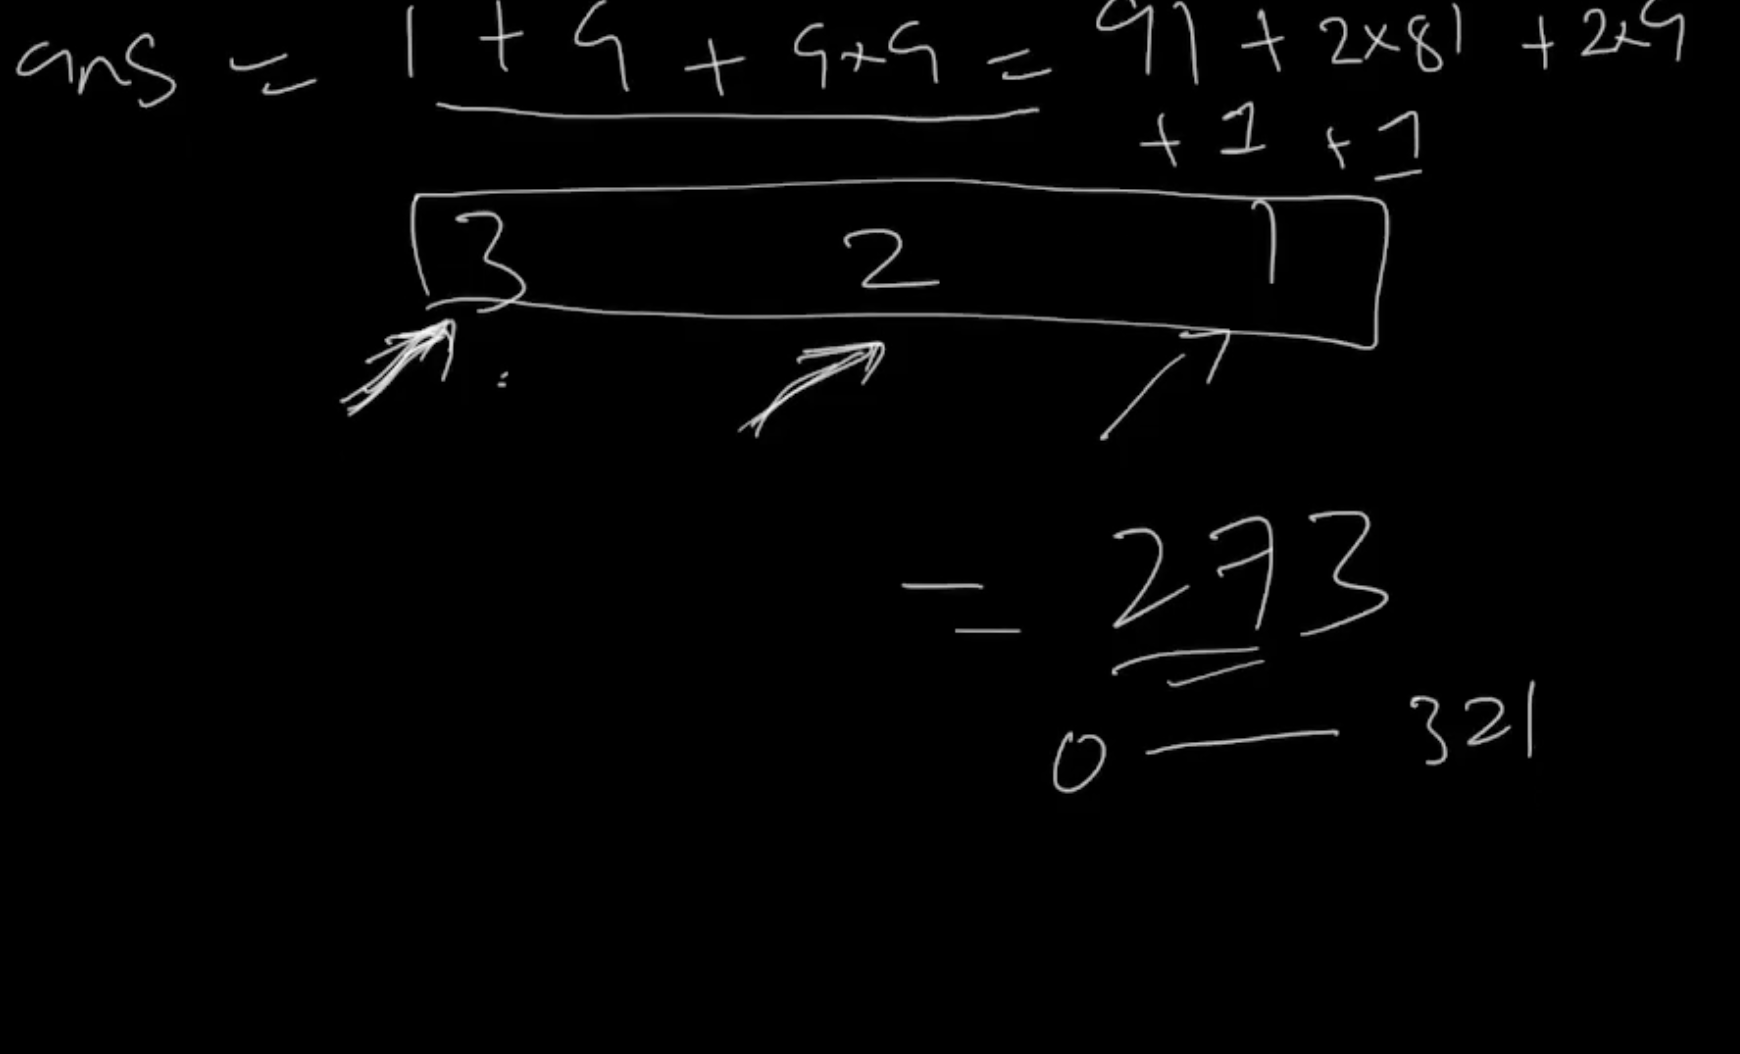 ans = 1 + 9 + 9x9 = 91 + 2x81 + 2x9
+ 1 + 1
3 2 1
= 273
0 — 321